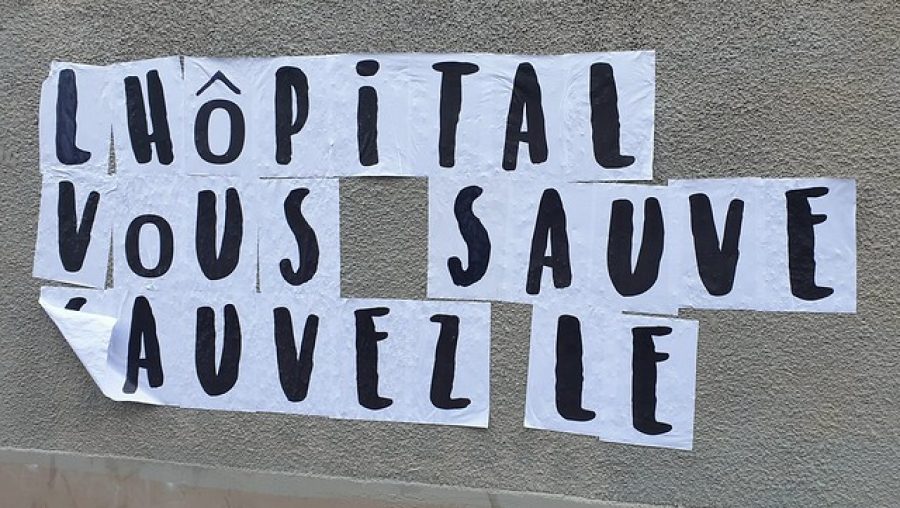 LHÔPiTAL
VoUS SAUVE
SAUVEZ LE